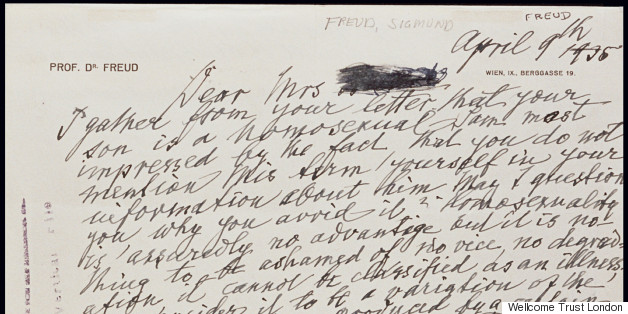 FREUD, SIGMUND
FREUD
April 9th 1935
PROF. DR. FREUD
WIEN, IX., BERGGASSE 19.
Dear Mrs
I gather from your letter that your
son is a homosexual. I am most
impressed by the fact that you do not
mention this term yourself in your
information about him. May I question
you, why you avoid it? Homosexuality
is assuredly no advantage but it is no-
thing to be ashamed of, no vice, no degrad-
ation, it cannot be classified as an illness;
consider it to be a variation of the
produced by a certain
Wellcome Trust London